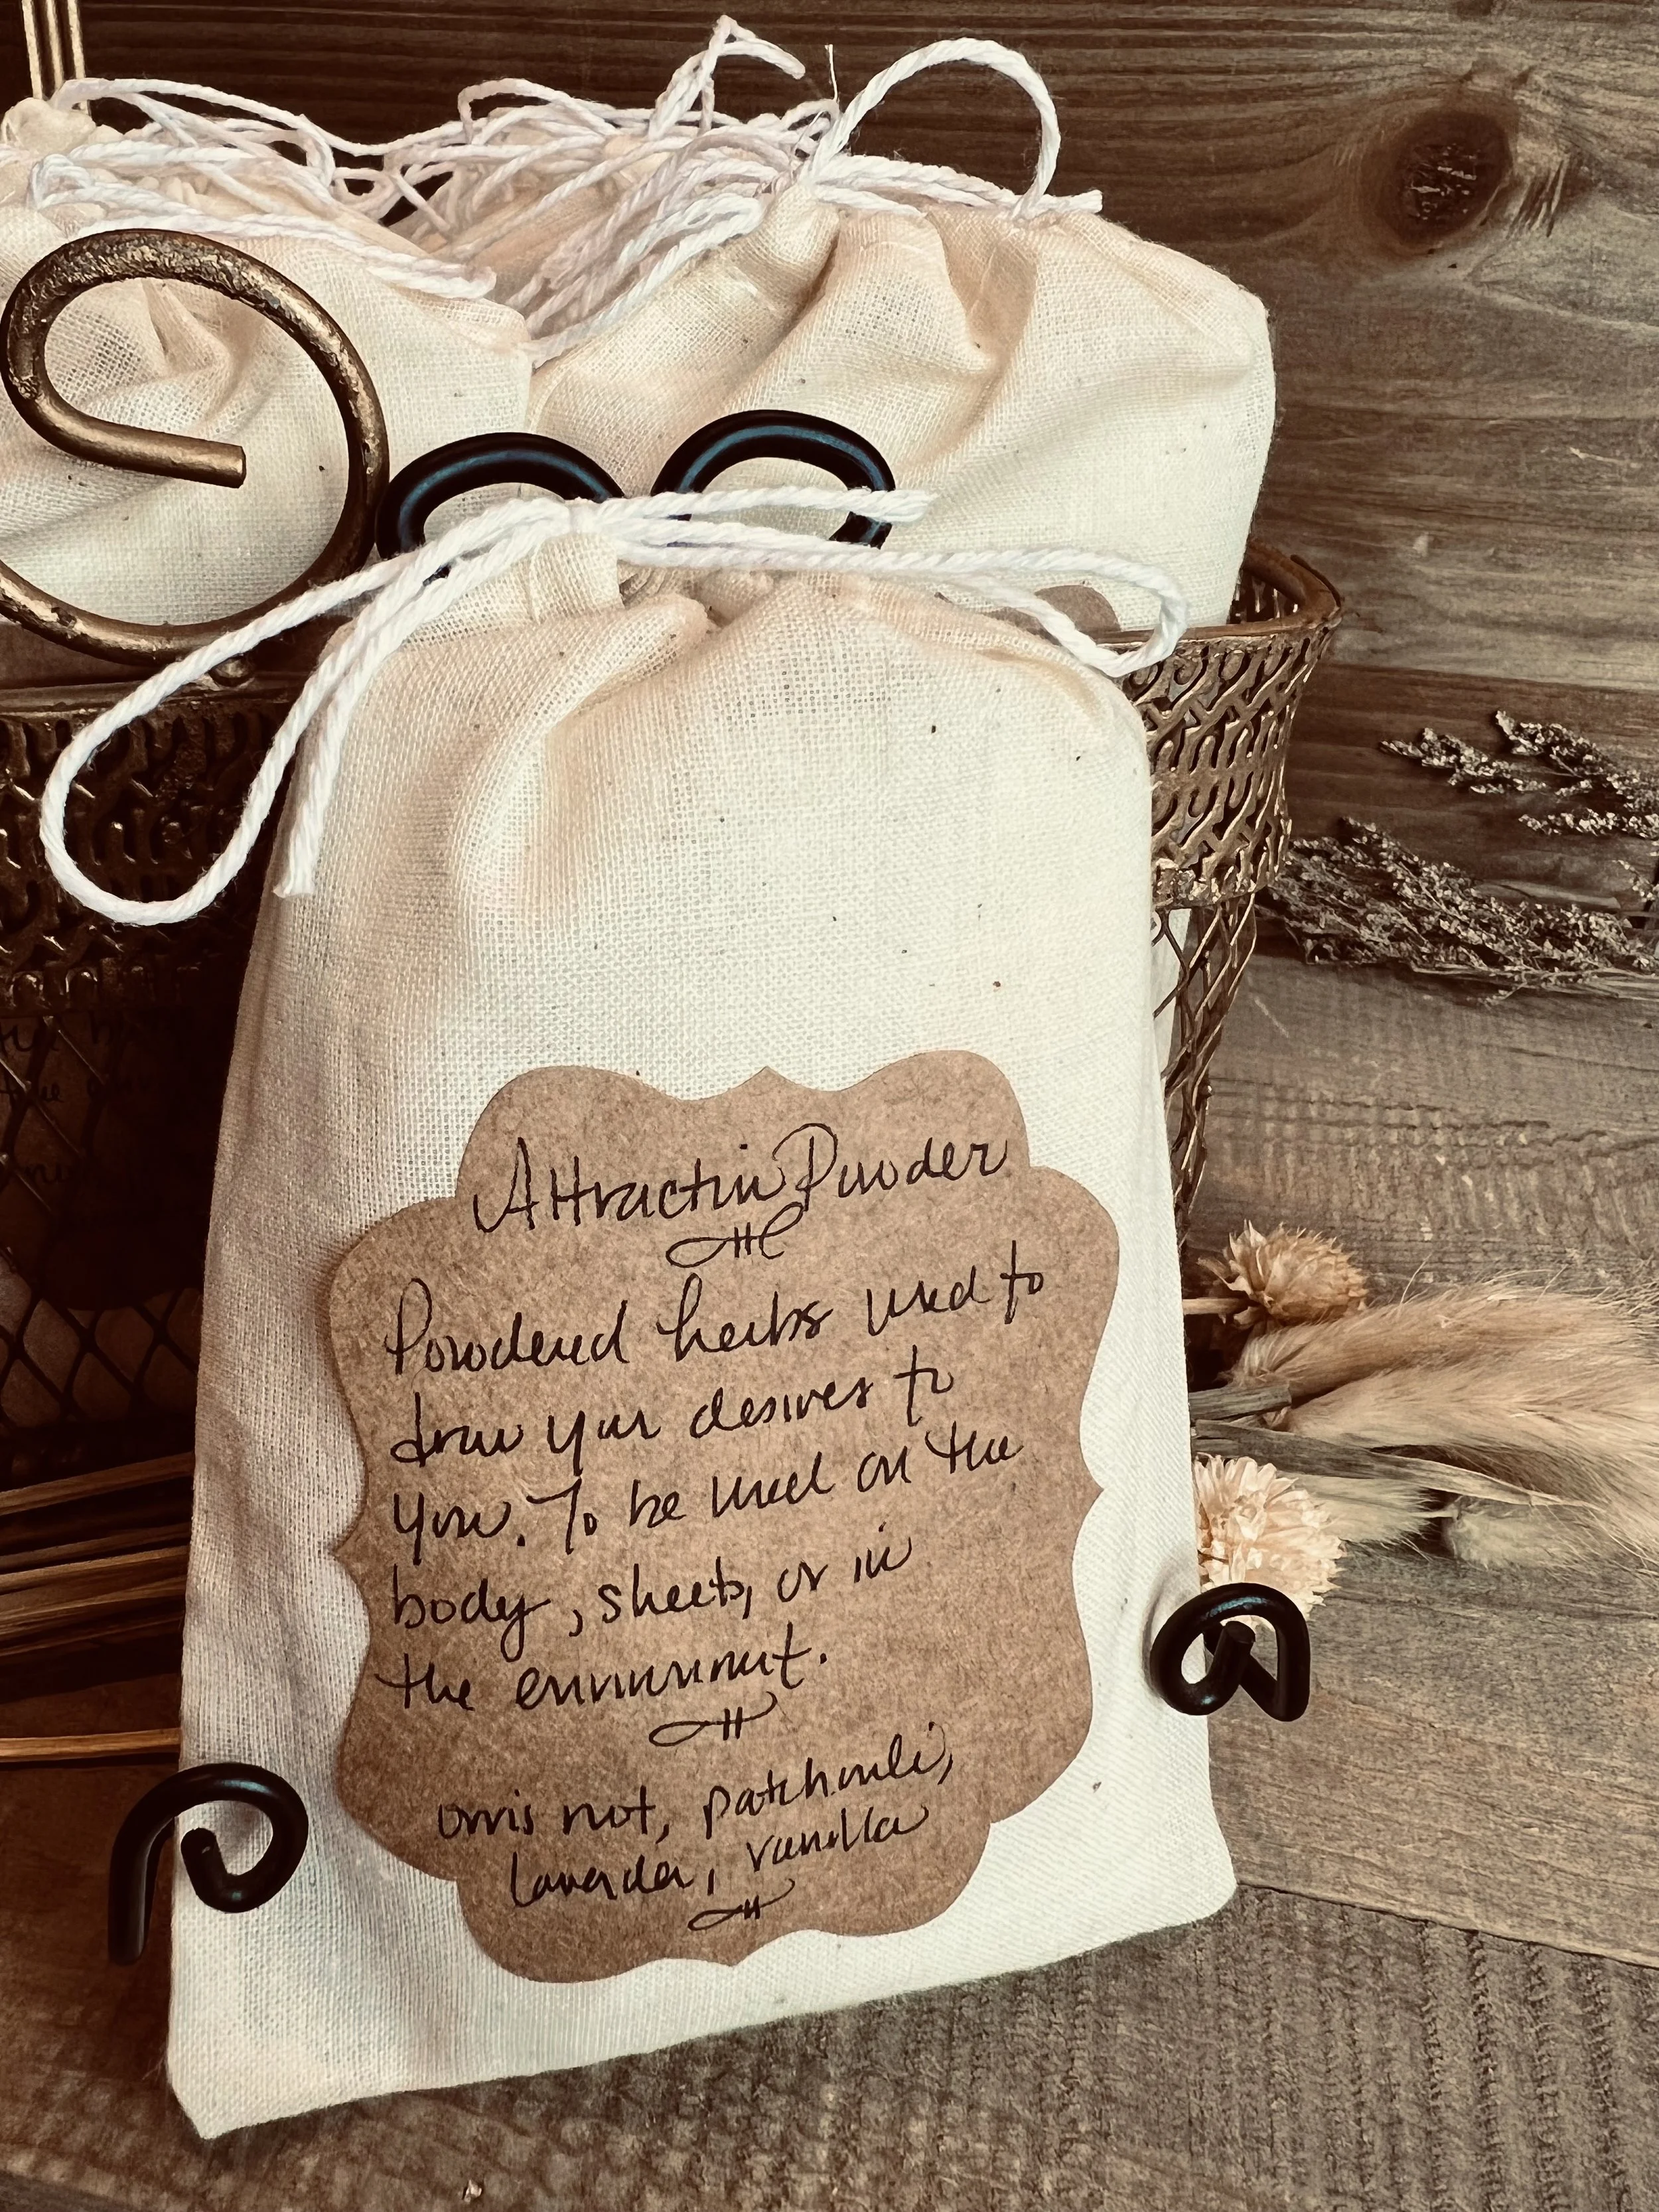 Attraction Powder
Powdered herbs used to
draw your desires to
you. To be used on the
body, sheets, or in
the environment.
orris root, patchouli,
lavender, vanilla